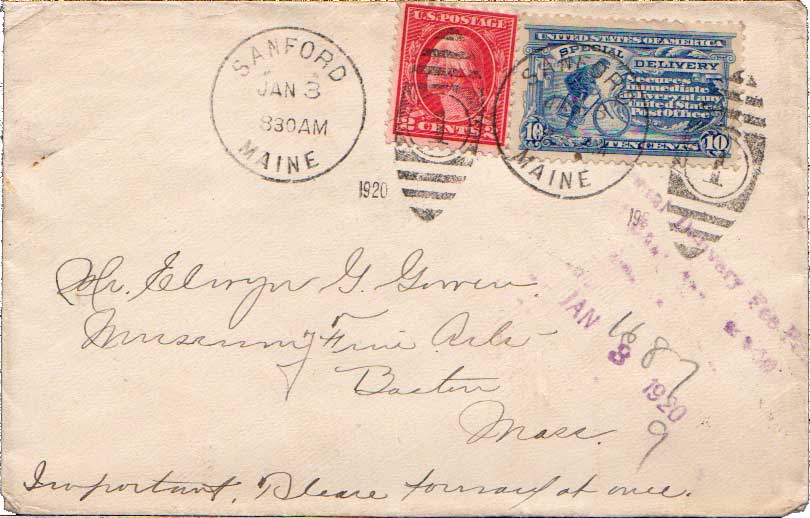 SANFORD
JAN 3
830AM
MAINE
1920
U.S. POSTAGE
2 CENTS 2
1
UNITED STATES OF AMERICA
SPECIAL DELIVERY
Secures
immediate
delivery at any
United States
Post Office
10 TEN CENTS 10
SANFORD
MAINE
1
Delivery Fee
JAN 3 1920
1687
9
Mr. Elwyn G. Gowen
Museum of Fine Arts
Boston
Mass.
Important. Please forward at once.